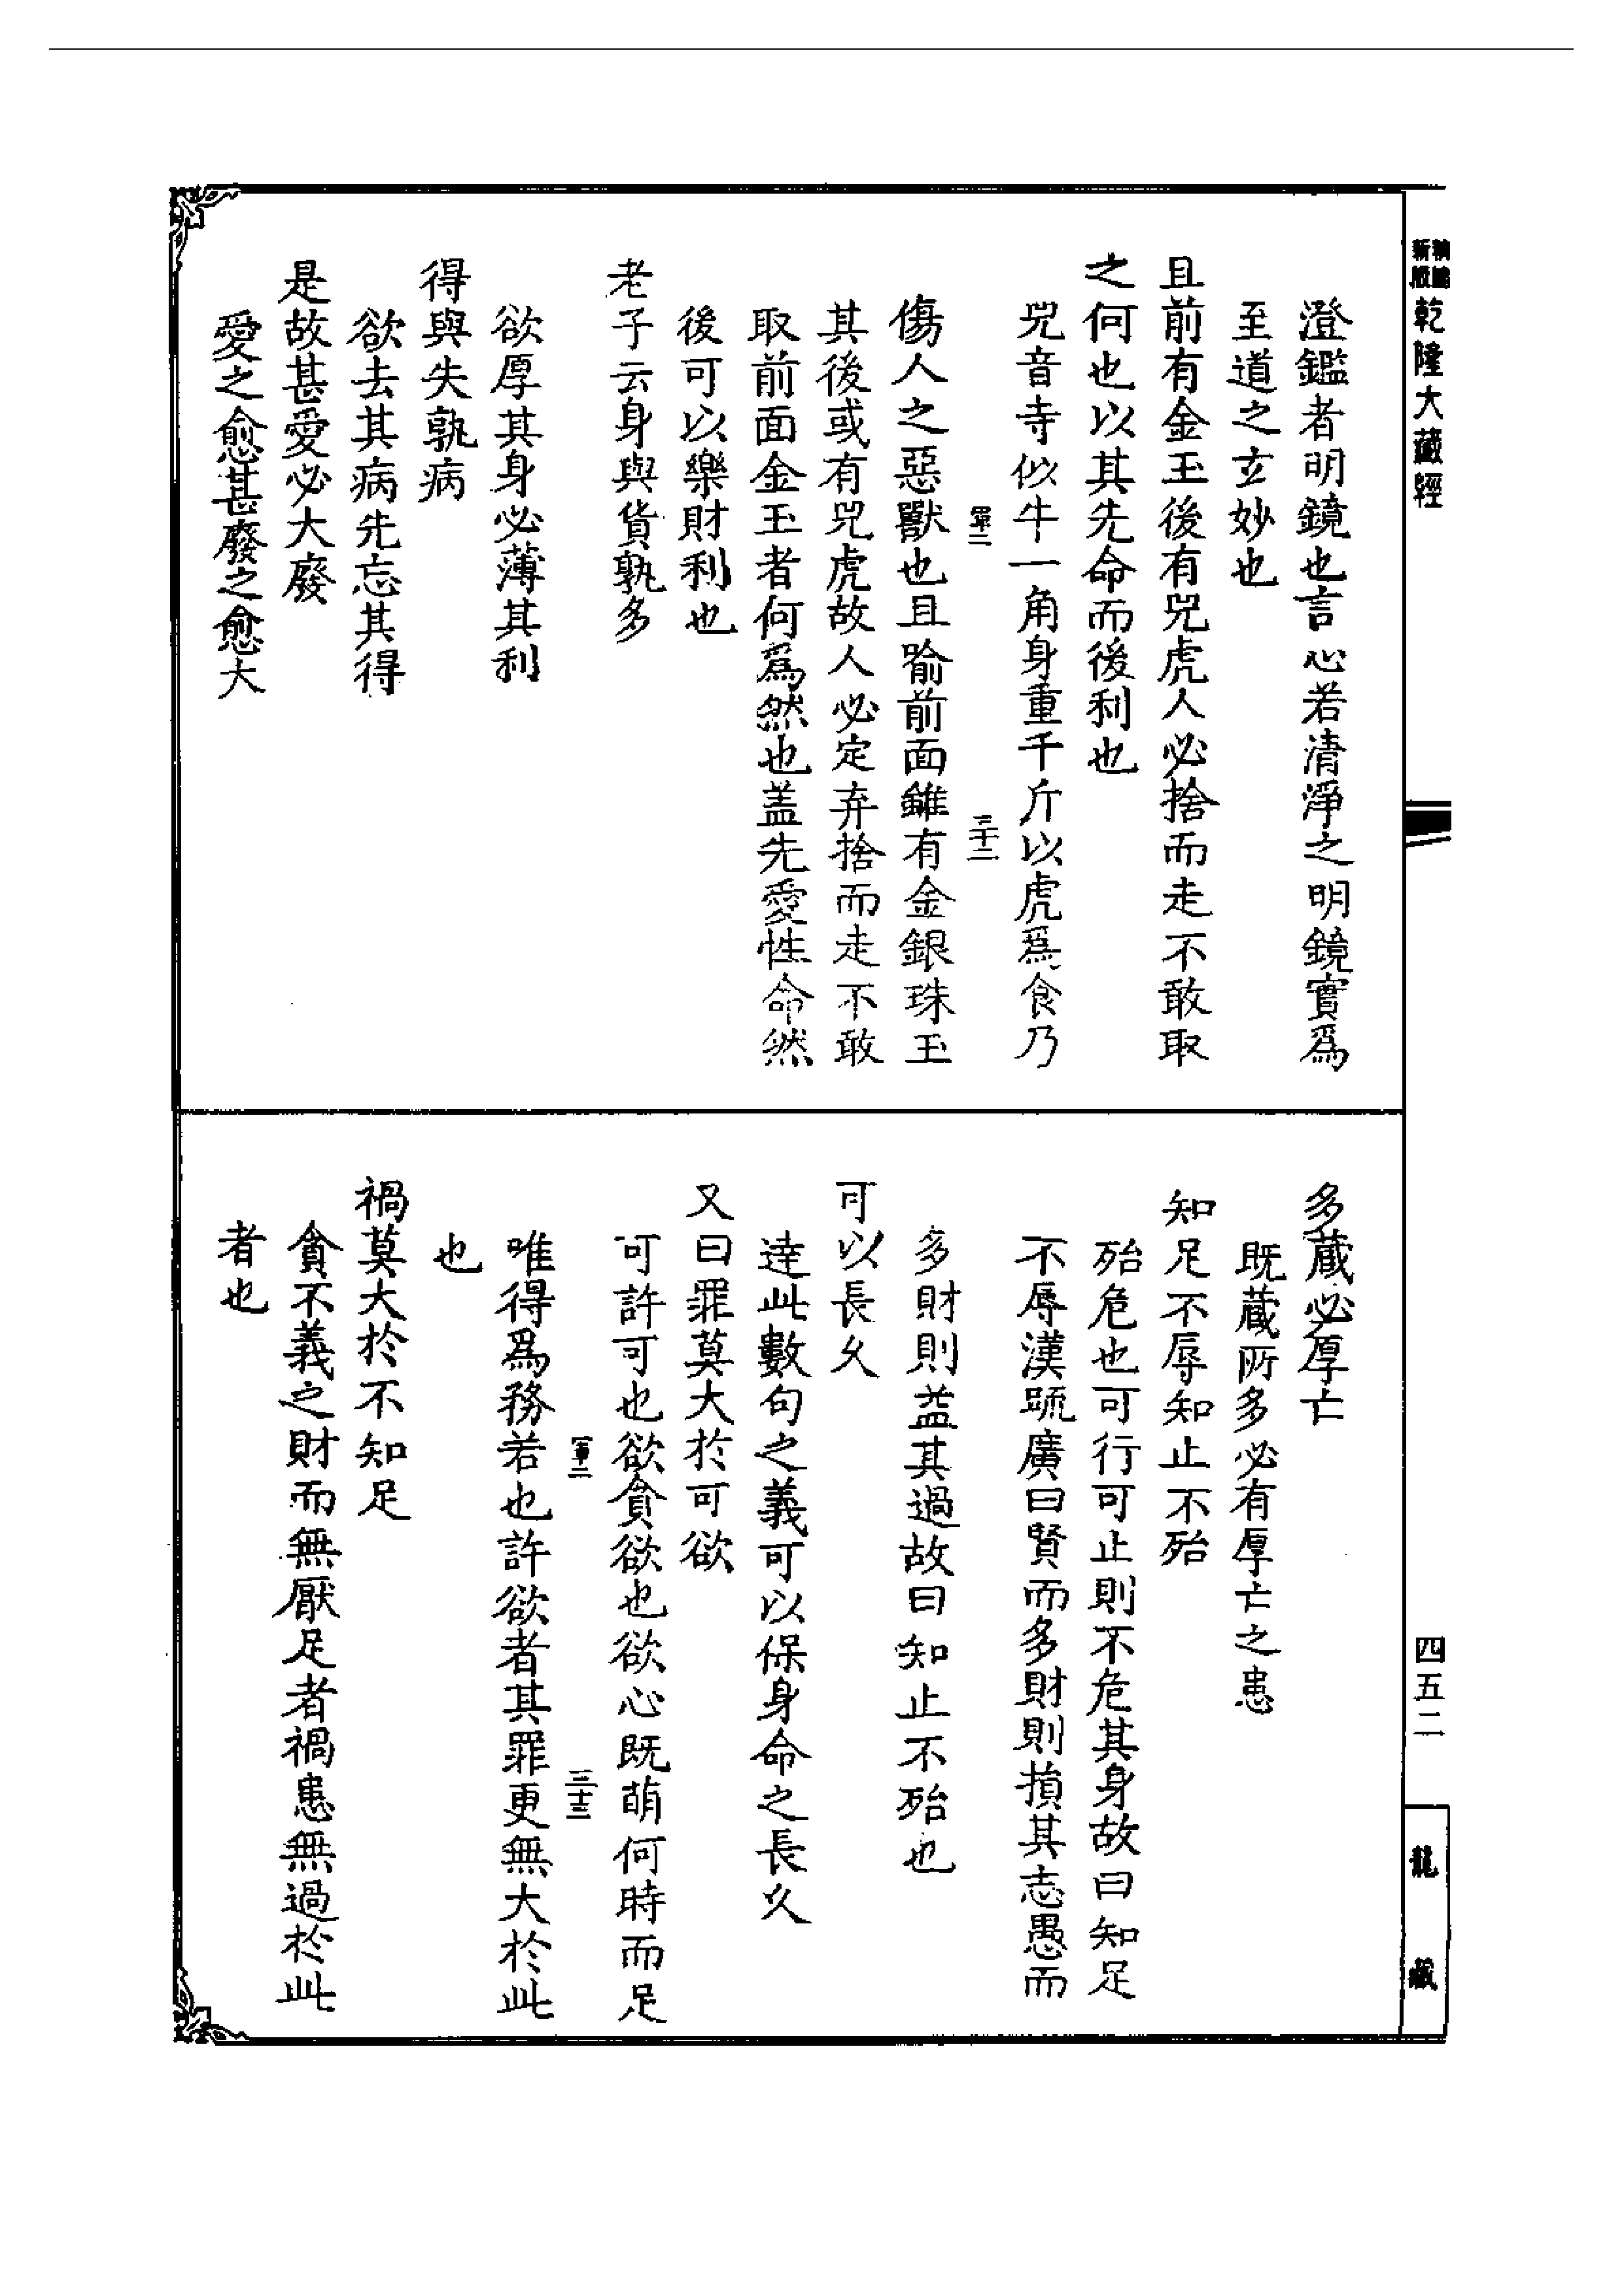 新版精編乾隆大藏經
澄鑑者明鏡也言心若清淨之明鏡實爲
至道之玄妙也
且前有金玉後有兕虎人必捨而走不敢取
之何也以其先命而後利也
兕音寺似牛一角身重千斤以虎爲食乃
軍二
三十二
傷人之惡獸也且喻前面雖有金銀珠玉
其後或有兕虎故人必定弃捨而走不敢
取前面金玉者何爲然也盖先愛性命然
後可以樂財利也
老子云身與貨孰多
欲厚其身必薄其利
得與失孰病
欲去其病先忘其得
是故甚愛必大廢
愛之愈甚廢之愈大
多蔵必厚亡
既蔵所多必有厚亡之患
知足不辱知止不殆
殆危也可行可止則不危其身故曰知足
不辱漢䟽廣曰賢而多財則損其志愚而
多財則益其過故曰知止不殆也
可以長久
達此數句之義可以保身命之長久
又曰罪莫大於可欲
可許可也欲貪欲也欲心既萌何時而足
軍二
三十三
唯得爲務若也許欲者其罪更無大於此
也
禍莫大於不知足
貪不義之財而無厭足者禍患無過於此
者也
四五二
龍藏